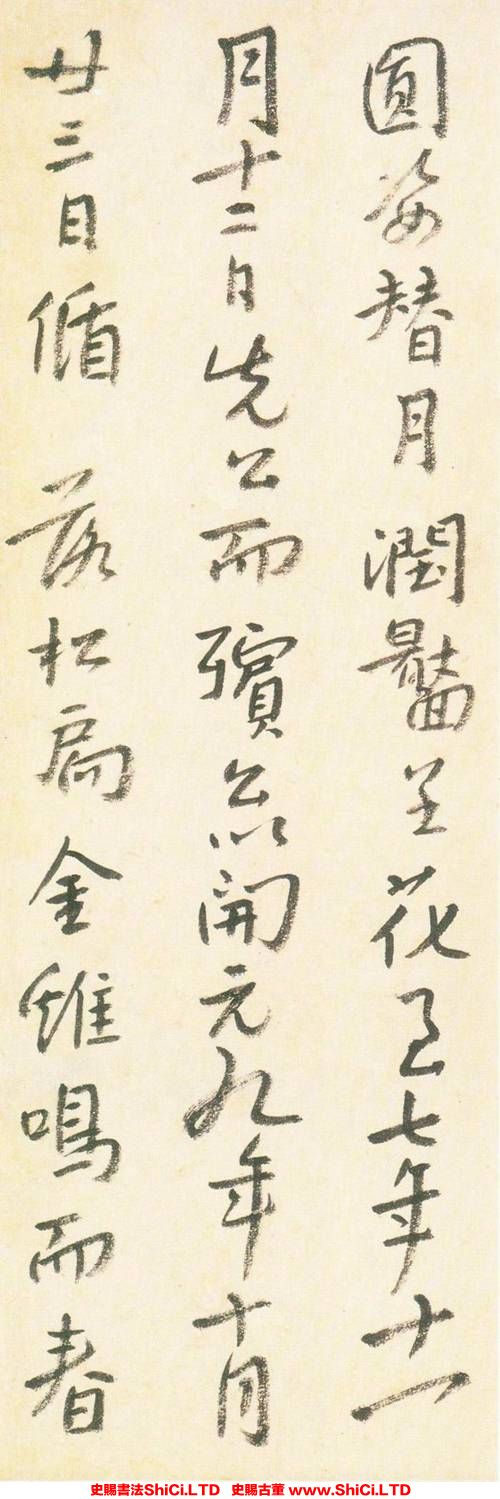 圓姿替月潤呈花七年十一
月十二日先公而殯開元九年十月
廿三日循 落松扃金鳴而春
史賜書法ShiCi.LTD 史賜古董 www.ShiCi.LTD